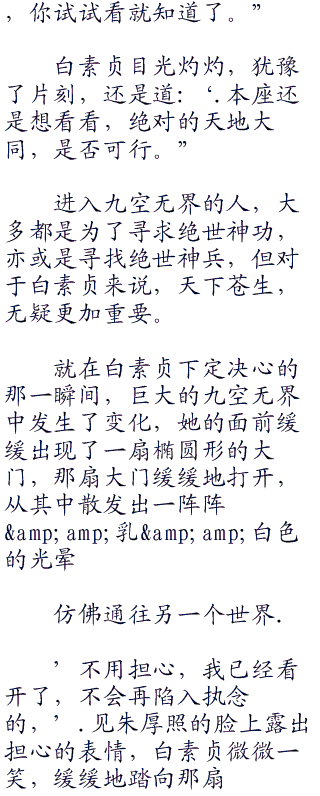 ，你试试看就知道了。”
　　白素贞目光灼灼，犹豫
了片刻，还是道：‘.本座还
是想看看，绝对的天地大
同，是否可行。”
　　进入九空无界的人，大
多都是为了寻求绝世神功，
亦或是寻找绝世神兵，但对
于白素贞来说，天下苍生，
无疑更加重要。
　　就在白素贞下定决心的
那一瞬间，巨大的九空无界
中发生了变化，她的面前缓
缓出现了一扇椭圆形的大
门，那扇大门缓缓地打开，
从其中散发出一阵阵
&amp;amp;乳&amp;amp;白色
的光晕
　　仿佛通往另一个世界.
　　’不用担心，我已经看
开了，不会再陷入执念
的，’.见朱厚照的脸上露出
担心的表情，白素贞微微一
笑，缓缓地踏向那扇